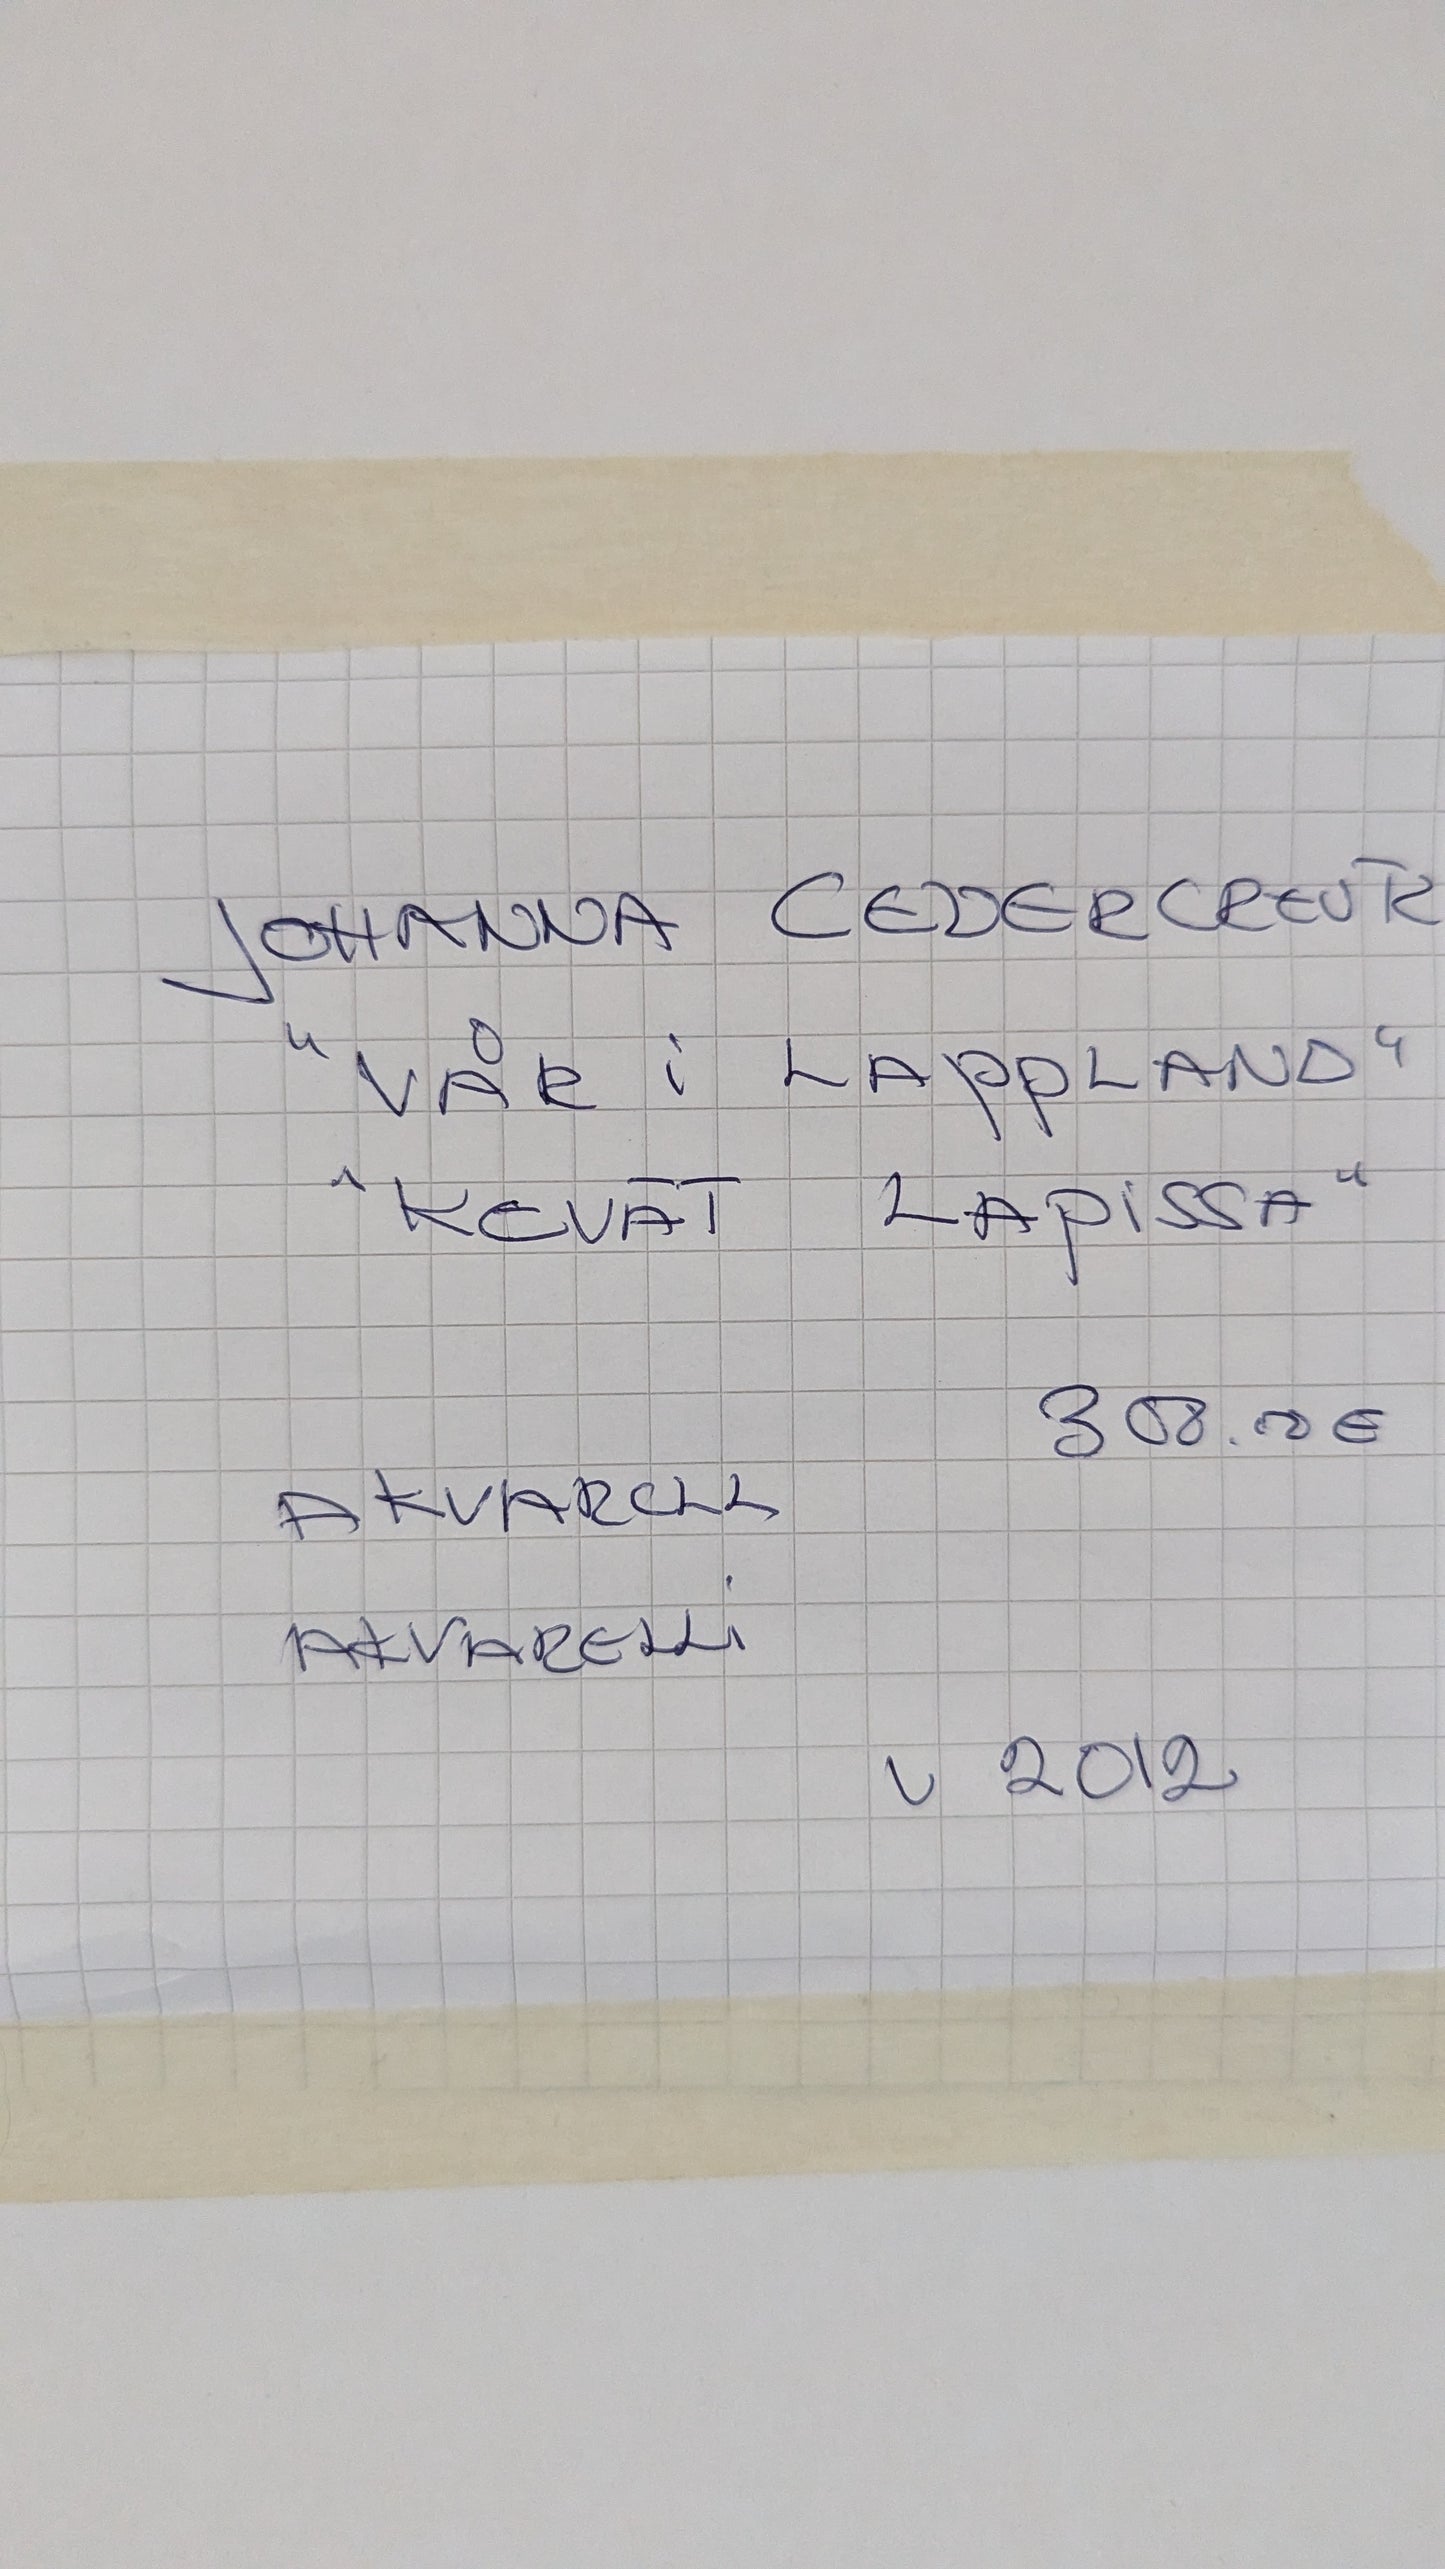 JOHANNA CEDERCREUTZ
"VÅR i LAPPLAND"
"KEVÄT LAPISSA"
300.00 €
AKVARELL
AKVARELLI
v 2012